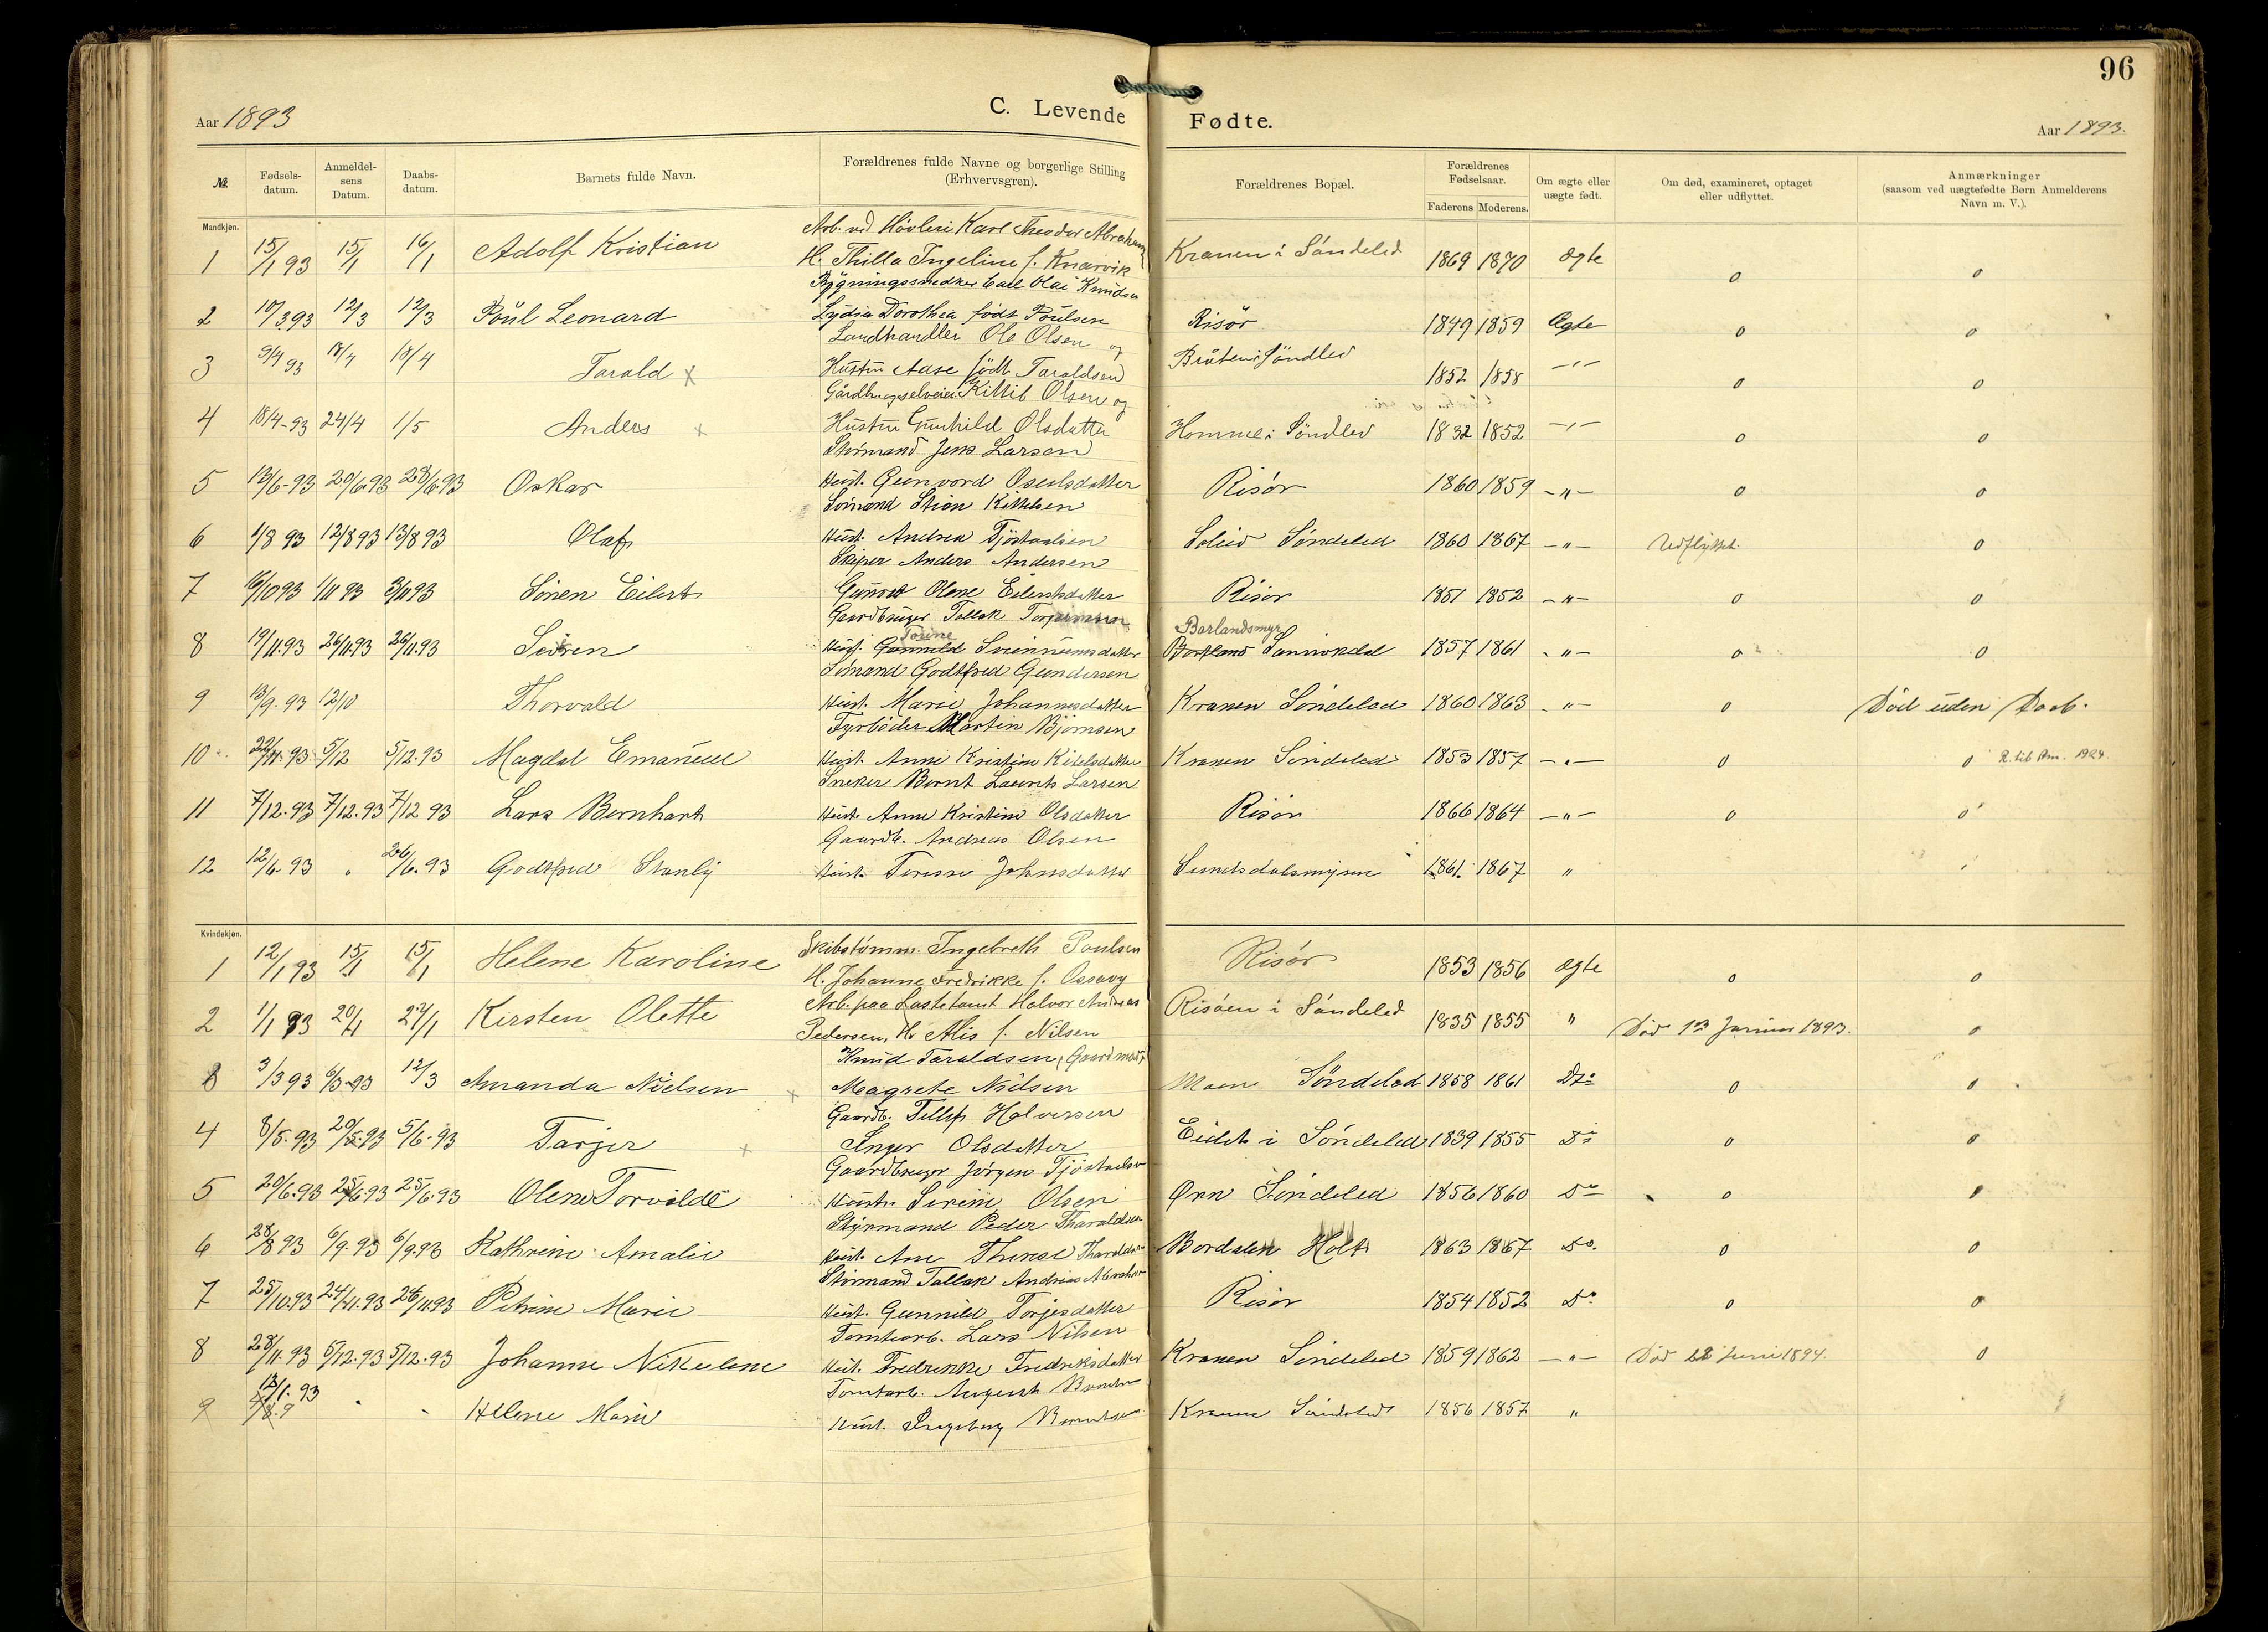 96
Aar 1893
C. Levende Fødte.
Aar 1893.
№.
Fødsels-datum.
Anmeldel-sens Datum.
Daabs-datum.
Barnets fulde Navn.
Forældrenes fulde Navne og borgerlige Stilling (Erhvervsgren).
Forældrenes Bopæl.
Forældrenes Fødselsaar.
Faderens Moderens.
Om ægte eller uægte født.
Om død, examineret, optaget eller udflyttet.
Anmærkninger (saasom ved uægtefødte Børn Anmelderens Navn m. V.).
Mandkjøn.
Arb. ved Høvleri Karl Theodor Abraham
1 15/1 93 15/1 16/1 Adolf Kristian H. Thilla Ingeline f. Knarvik Kranen i Søndeled 1869 1870 Ægte 0 0
Bygningssnedker Carl Olai Knudsen
2 10/3 93 12/3 12/3 Poul Leonard Lydia Dorothea født Poulsen Risør 1849 1859 Ægte 0 0
Landhandler Ole Olsen og
3 9/4 93 18/4 18/4 Tarald x Hustru Aase født Taraldsen Bråten i Søndled 1852 1858 -"- 0 0
Gårdbr. og selveier Kittil Olsen og
4 18/4-93 24/4 1/5 Anders x Hustru Gunhild Olsdatter Homme i Søndled 1832 1852 -"- 0 0
Stýrmand Jens Larsen
5 12/6-93 20/6 93 28/6 93 Oskar Hust. Gunvord Oseulsdatter Risør 1860 1859 -"- 0 0
Sømand Stian Kittelsen
6 1/8 93 12/8 93 13/8 93 Olaf Hust. Andrea Tjöstaulsen Søndeled 1860 1867 -"- Udflyttet. 0
Skiper Anders Andersen
7 16/10 93 1/11 93 3/11 93 Sören Eilert Gunvor Olene Eilertsdatter Risør 1851 1852 -"- 0 0
Gaardbruger Tallak
8 19/11.93 26/11.93 26/11.93 Sören Hust. Gunnild Torine Barlandsmyr Sannikedal 1857 1861 -"- 0 0
Sömand Godtfred Gundersen
9 13/9.93 12/10 Thorvald Hust. Marie Johannesdatter Kranen Søndeled 1860 1863 -"- 0 Död uden Daab.
Fyrböder Martin Björnsen
10 22/11.93 5/12 5/12.93 Magdal Emanuel Hust. Anne Kristine Kitelsdatter Kranen Søndeled 1853 1857 -"- 0 0 R. til Am. 1924.
Sneker Bernt Laurits Larsen
11 7/12.93 7/12.93 7/12 93 Lars Bernhart Hust. Anne Kristine Olsdatter Risør 1866 1864 -"- 0 0
Gaardb. Andreas Olsen
12 12/6.93 " 26/6.93 Godtfred Stanly Hust. Terese Johnsdatter Sundsdalsmyren 1861. 1867 "
Kvindekjøn.
Skibstømm. Ingebreth Poulsen
1 12/1 93 15/1 15/1 Helene Karoline H. Johanne Fredrikke f. Ossavy Risør 1853 1856 Ægte 0 0
Arb. paa Lastetomt Halvor Andreas
2 1/1 93 20/1 22/1 Kirsten Olette Pedersen, H. Alis f. Nilsen Risøen i Søndeled 1835 1855 " Død 1893. 0
Knud Taraldsen, Gaardmand
3 3/3 93 6/3-93 12/3 Amanda Nielsen x Magrete Nilsen Moen Søndeled 1858 1861 Dto 0 0
Gaardb. Tellef Halvorsen
4 8/5.93 20/5.93 5/6-93 Tarjer x Inger Olsdatter Eidet i Søndeled 1839 1855 Do 0 0
Gaardbruger Jørgen Tjöstaulsen
5 20/6.93 25/6 93 25/6.93 Olene Torvalde Hustr. Serine Olsen Ørn Søndeled 1856 1860 Do 0
Stýrmand Peder Tharaldsen
6 28/8 93 6/9.93 6/9.93 Kathrine Amalie Hust. Ane Therese Nordalen Holt 1863 1867 Do. 0 0
Stýrmand Tallak Andreas
7 25/10.93 24/11.93 26/11.93 Petrine Marie Hust. Gunnild Torjesdatter Risør 1854 1852 Do. 0 0
Tomtearb. Lars Nilsen
8 28/11.93 5/12.93 5/12.93 Johanne Nikoline Hust. Fredrikke Fredriksdatter Kranen Søndeled 1859 1862 -"- Död 22 Juni 1894. 0
Tomtarb. August
9 12/1.93 " " Helene Marie Hust. Ingeborg Kranen Søndeled 1856 1857 "